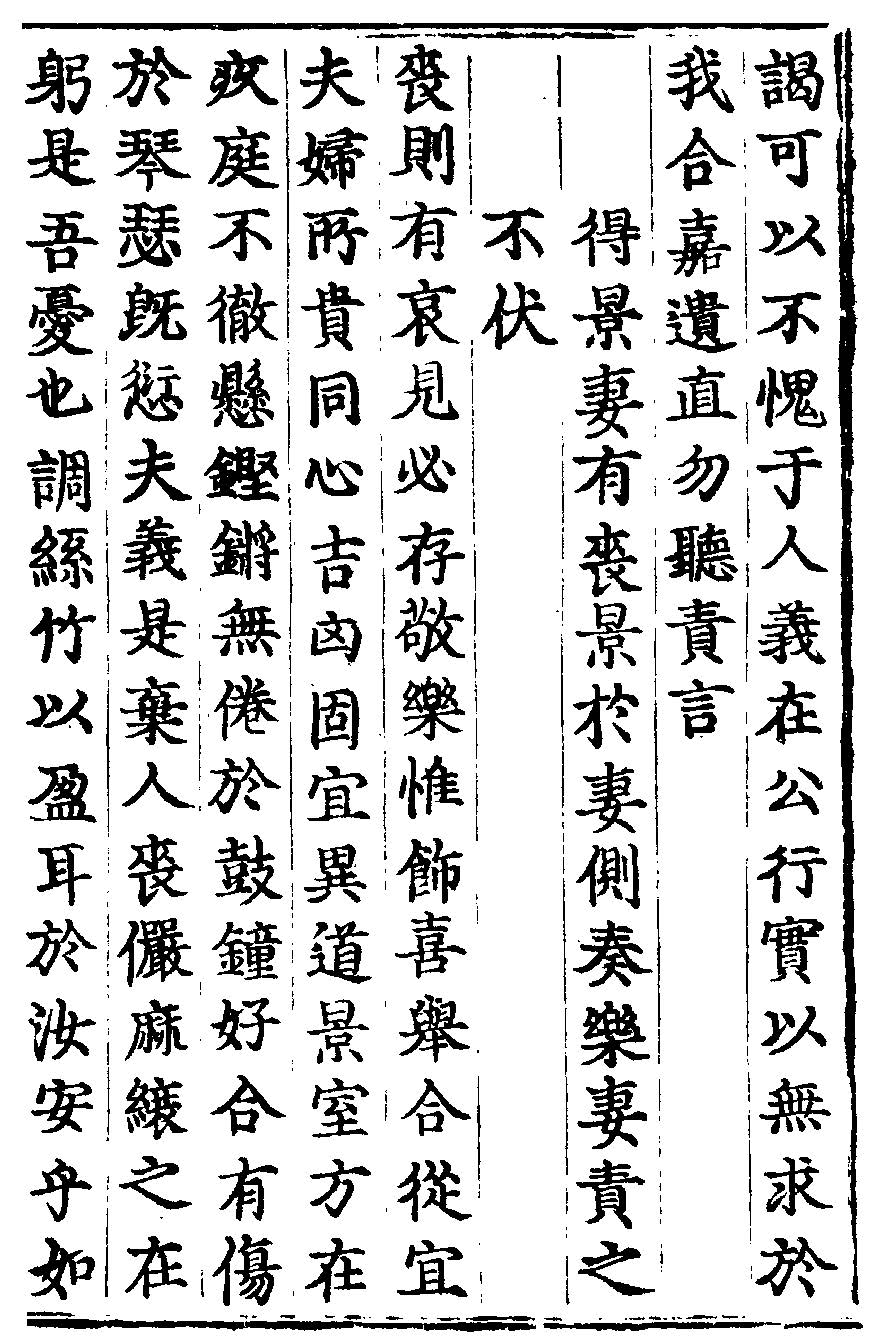 謁可以不愧于人義在公行實以無求於
我合嘉遺直勿聽責言
得景妻有喪景於妻側奏樂妻責之
不伏
喪則有哀見必存敬樂惟飾喜舉合從宜
夫婦所貴同心吉凶固宜異道景室方在
疚庭不徹懸鏗鏘無倦於鼓鐘好合有傷
於琴瑟旣愆夫義是棄人喪儼麻縗之在
躬是吾憂也調絲竹以盈耳於汝安乎如